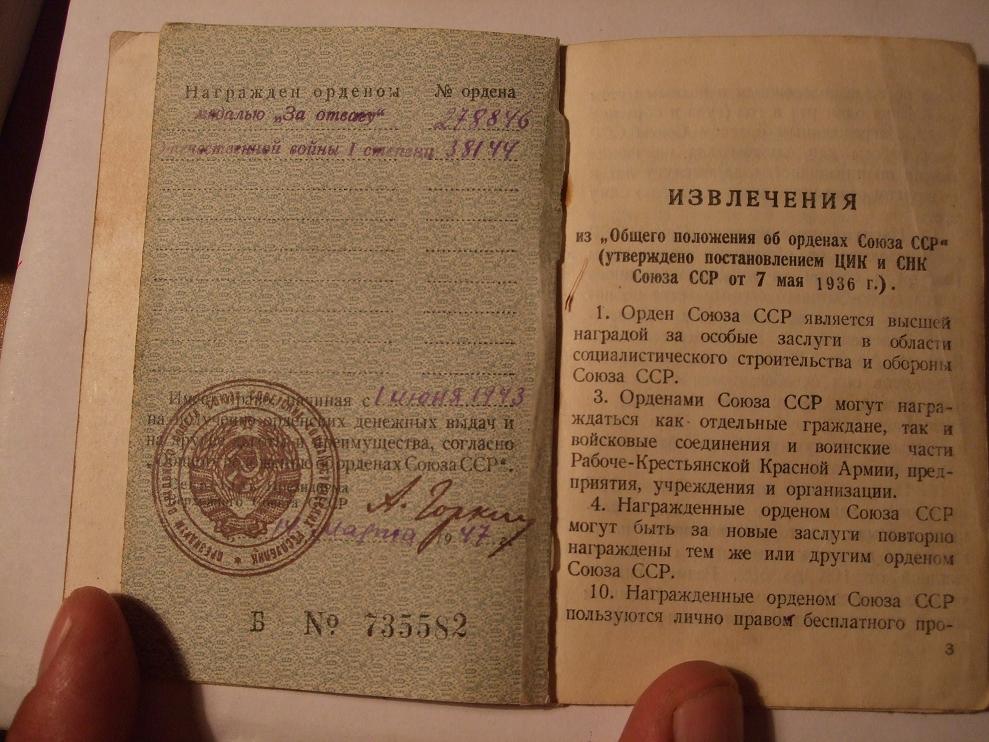 Награжден орденом № ордена
медалью „За отвагу“ 278846
Отечественной войны I степени 38144
Имеет право, начиная с 1 июня 1943
на получение орденских денежных выдач и
на другие льготы и преимущества, согласно
„Общего положения об орденах Союза ССР“.
Президиума
Верховного Совета СССР
А. Горкин
14 марта 1947 г.
Б № 735582
ИЗВЛЕЧЕНИЯ
из „Общего положения об орденах Союза ССР“
(утверждено постановлением ЦИК и СНК
Союза ССР от 7 мая 1936 г.).
1. Орден Союза ССР является высшей
наградой за особые заслуги в области
социалистического строительства и обороны
Союза ССР.
3. Орденами Союза ССР могут награ-
ждаться как отдельные граждане, так и
войсковые соединения и воинские части
Рабоче-Крестьянской Красной Армии, пред-
приятия, учреждения и организации.
4. Награжденные орденом Союза ССР
могут быть за новые заслуги повторно
награждены тем же или другим орденом
Союза ССР.
10. Награжденные орденом Союза ССР
пользуются лично правом бесплатного про-
3